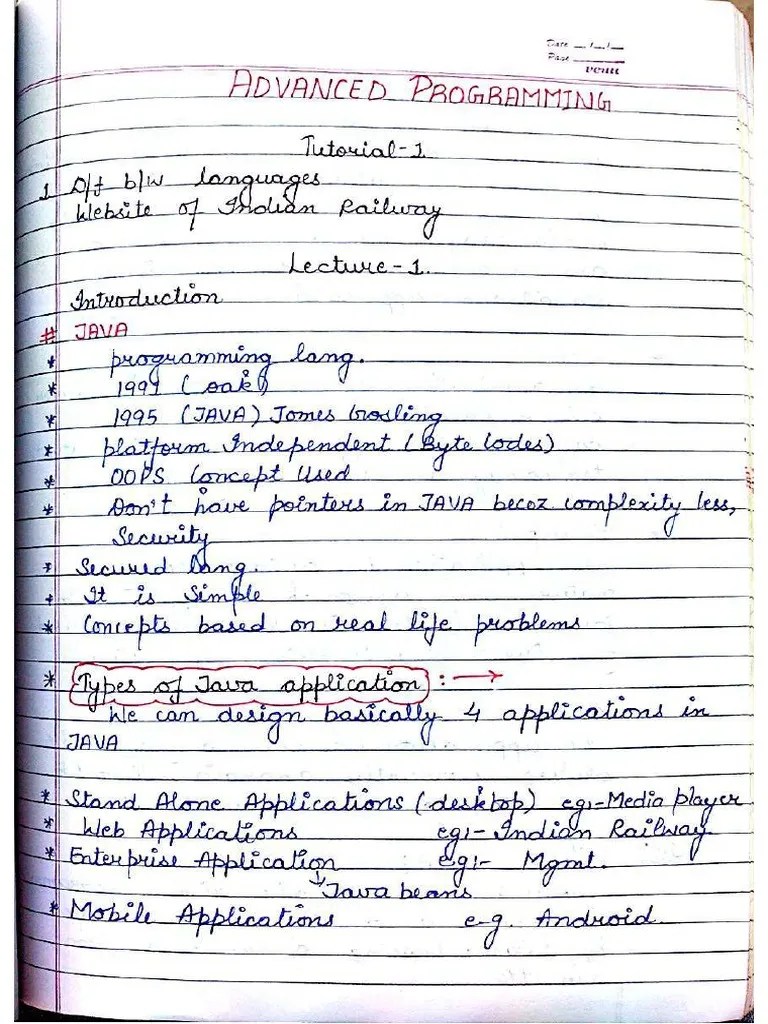 Date __/__/__
Page
ADVANCED PROGRAMMING
Tutorial-1
1 D/f b/w languages
Website of Indian Railway
Lecture-1.
Introduction
# JAVA
* programming lang.
* 1991 (oak)
* 1995 (JAVA) James Gosling
* platform Independent (Byte Codes)
* OOPS Concept Used
* Don't have pointers in JAVA becoz complexity less,
Security
* Secured lang.
* It is Simple
* Concepts based on real life problems
* Types of Java application : →
We can design basically 4 applications in
JAVA
* Stand Alone Applications (desktop) eg:-Media player
* Web Applications eg:- Indian Railway
* Enterprise Application eg:- Mgmt.
↳ Java beans
* Mobile Applications e.g. Android